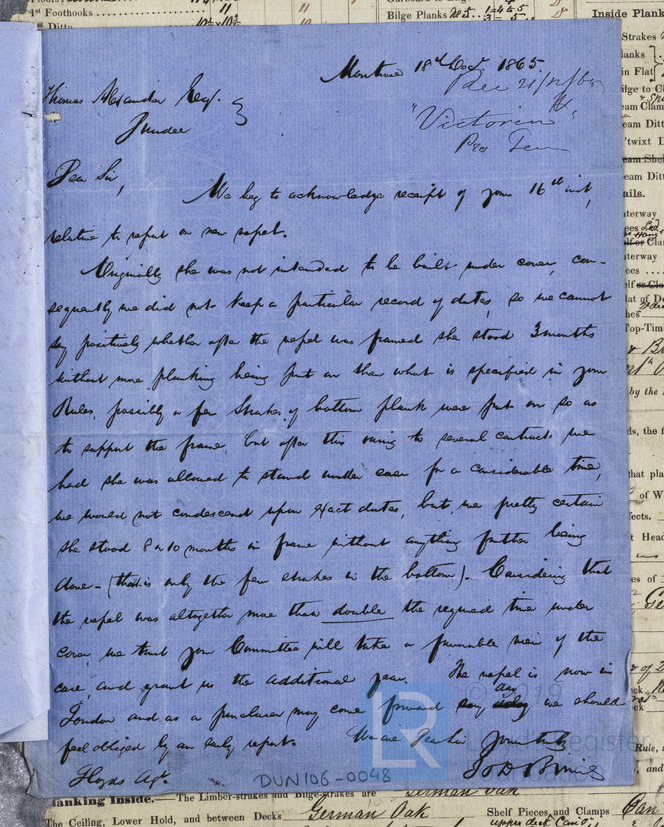 1st Foothooks 11 11
2nd Ditto 10½ 10½
Bilge Planks
Inside Plank
Montrose 18th Oct. 1865
Rec 21/12/65
Thomas Alexander Esqr.
Dundee
"Victoria"
Pro Tem
Dear Sir,
We beg to acknowledge receipt of yours 16th inst,
relative to report on new vessel.
Originally she was not intended to be built under cover, con-
sequently we did not keep a particular record of dates, so we cannot
say positively whether after the vessel was framed she stood 3 months
without more planking being put on than what is specified in your
Rules, possibly a few Strakes of bottom plank were put on so as
to support the frame, but after this owing to several contracts we
had she was allowed to stand under cover for a considerable time,
we would not condescend upon exact dates, but, we pretty certain
she stood 8 or 10 months in frame without anything further being
done - (that is only the few strakes in the bottom). Considering that
the vessel was altogether more than double the required time under
cover, we trust your Committee will take a favourable view of the
case, and grant us the additional year. The vessel is now in
London and as a purchaser may come forward any day we should
feel obliged by an early report. We are Dear Sir Yours truly
Lloyds Agt.
DUN106-0048
© 2019
LR
Lloyd's Register
Planking Inside.— The Limber-strakes and Bilge-strakes are German Oak
The Ceiling, Lower Hold, and between Decks German Oak
Shelf Pieces and Clamps
upper deck